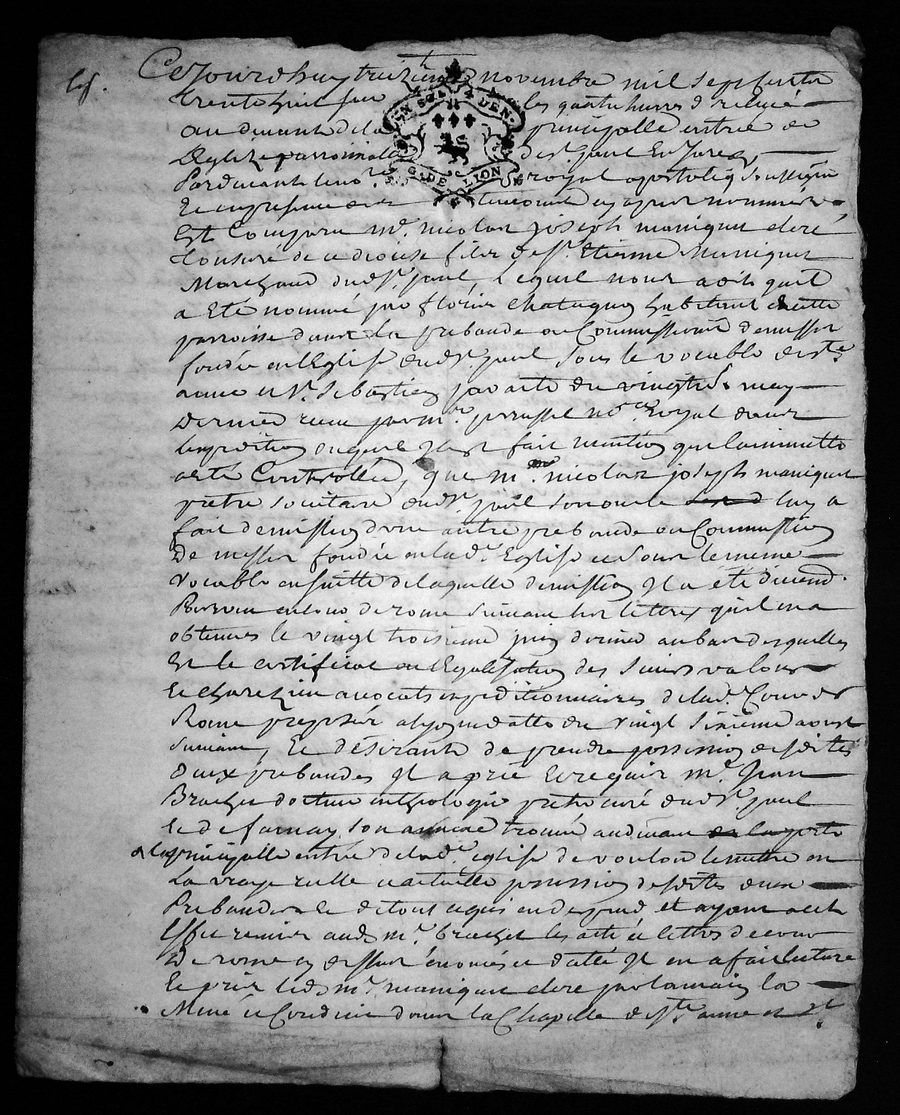 Cejourdhuy treizieme novembre mil sept cents
trente huit sur les quatre heures de relevée
au devant de la principalle entrée de
l'Eglise parroissialle de st. paul En Jarez,
Pardevant le no.re royal apostoliq soussigné
Et en presence des temoins cy apres nommés
Est Comparu mr. nicolas joseph maniquet clerc
tonsuré de ce diocese fils de sr. Etienne Maniquet
Marchand dud. st. paul, Lequel nous a dit quil
a Eté nommé par fleurie chataignon habitant de cette
parroisse dans la prebande ou Commission de messes
fondée en l'Eglise dud. st. paul sous le vocable de ste.
anne et st. Sebastien par acte du vingt may
dernier recu par me. no.re Royal dont
Lexpedition duquel il est fait mention que la minutte
a eté Controllée, que mre. nicolas joseph maniquet
pretre societaire dud. st. paul son oncle luy a
fait demission d'une autre prebande ou Commission
De messes fondée en lad. Eglise et sous le meme
vocable en suitte de laquelle demission il a eté
Pourvu en cour de rome suivant les lettres quil en a
obtenues le vingt troisieme juin dernier au bas desquelles
Est le certificat ou Legalisation des sieurs valous
Et charezieu avocats expeditionnaires de lad. Cour de
Rome preposés a Lyon datté du vingt sixieme aoust
suivant, Et désirant de prendre possession desdites
deux prebandes il a prié Et requis mre. Jean
Brachet docteur en theologie pretre curé dud. st. paul
Et de farnay son annexe trouvé au devant de la porte
& la principalle entrée de lad. eglise de vouloir le mettre en
La vraye reelle et actuelle possession desdites deux
Prebandes Et de tout ce qui en depend et ayant a cet
Effet remis aud. mre. brachet les actes et lettres de cour
De rome cy dessus énoncés et dattés il en a fait lecture
Et pris led. mre. maniquet clerc par la main la
Mené et Conduit dans la Chapelle de ste. anne et st.
G. DE LION